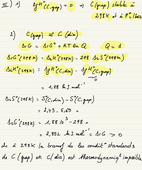 III) 1) ΔfH°(C,gap) = 0 → C(gap) stable à
298K et à P° 1bar
2) C(gap) ⇌ C(dia)
ΔrG = ΔrG° + RT ln Q Q = 1
ΔrG°(298K) = ΔrH°(298K) - 298 ΔrS°(298K)
ΔrH°(298K) = ΔfH°(C,dia) - ΔfH°(C,gap)
= 1,88 kJ mol⁻¹
ΔrS°(298K) = S°(C,dia) - S°(C,gap)
= 2,43 - 5,69
ΔrG°(298K) =
= 2,852 kJ mol⁻¹ ΔrG > 0
de à 298K la transf ds les condit° standards
de C(gap) et C(dia) est thermodynamiq^t impossible